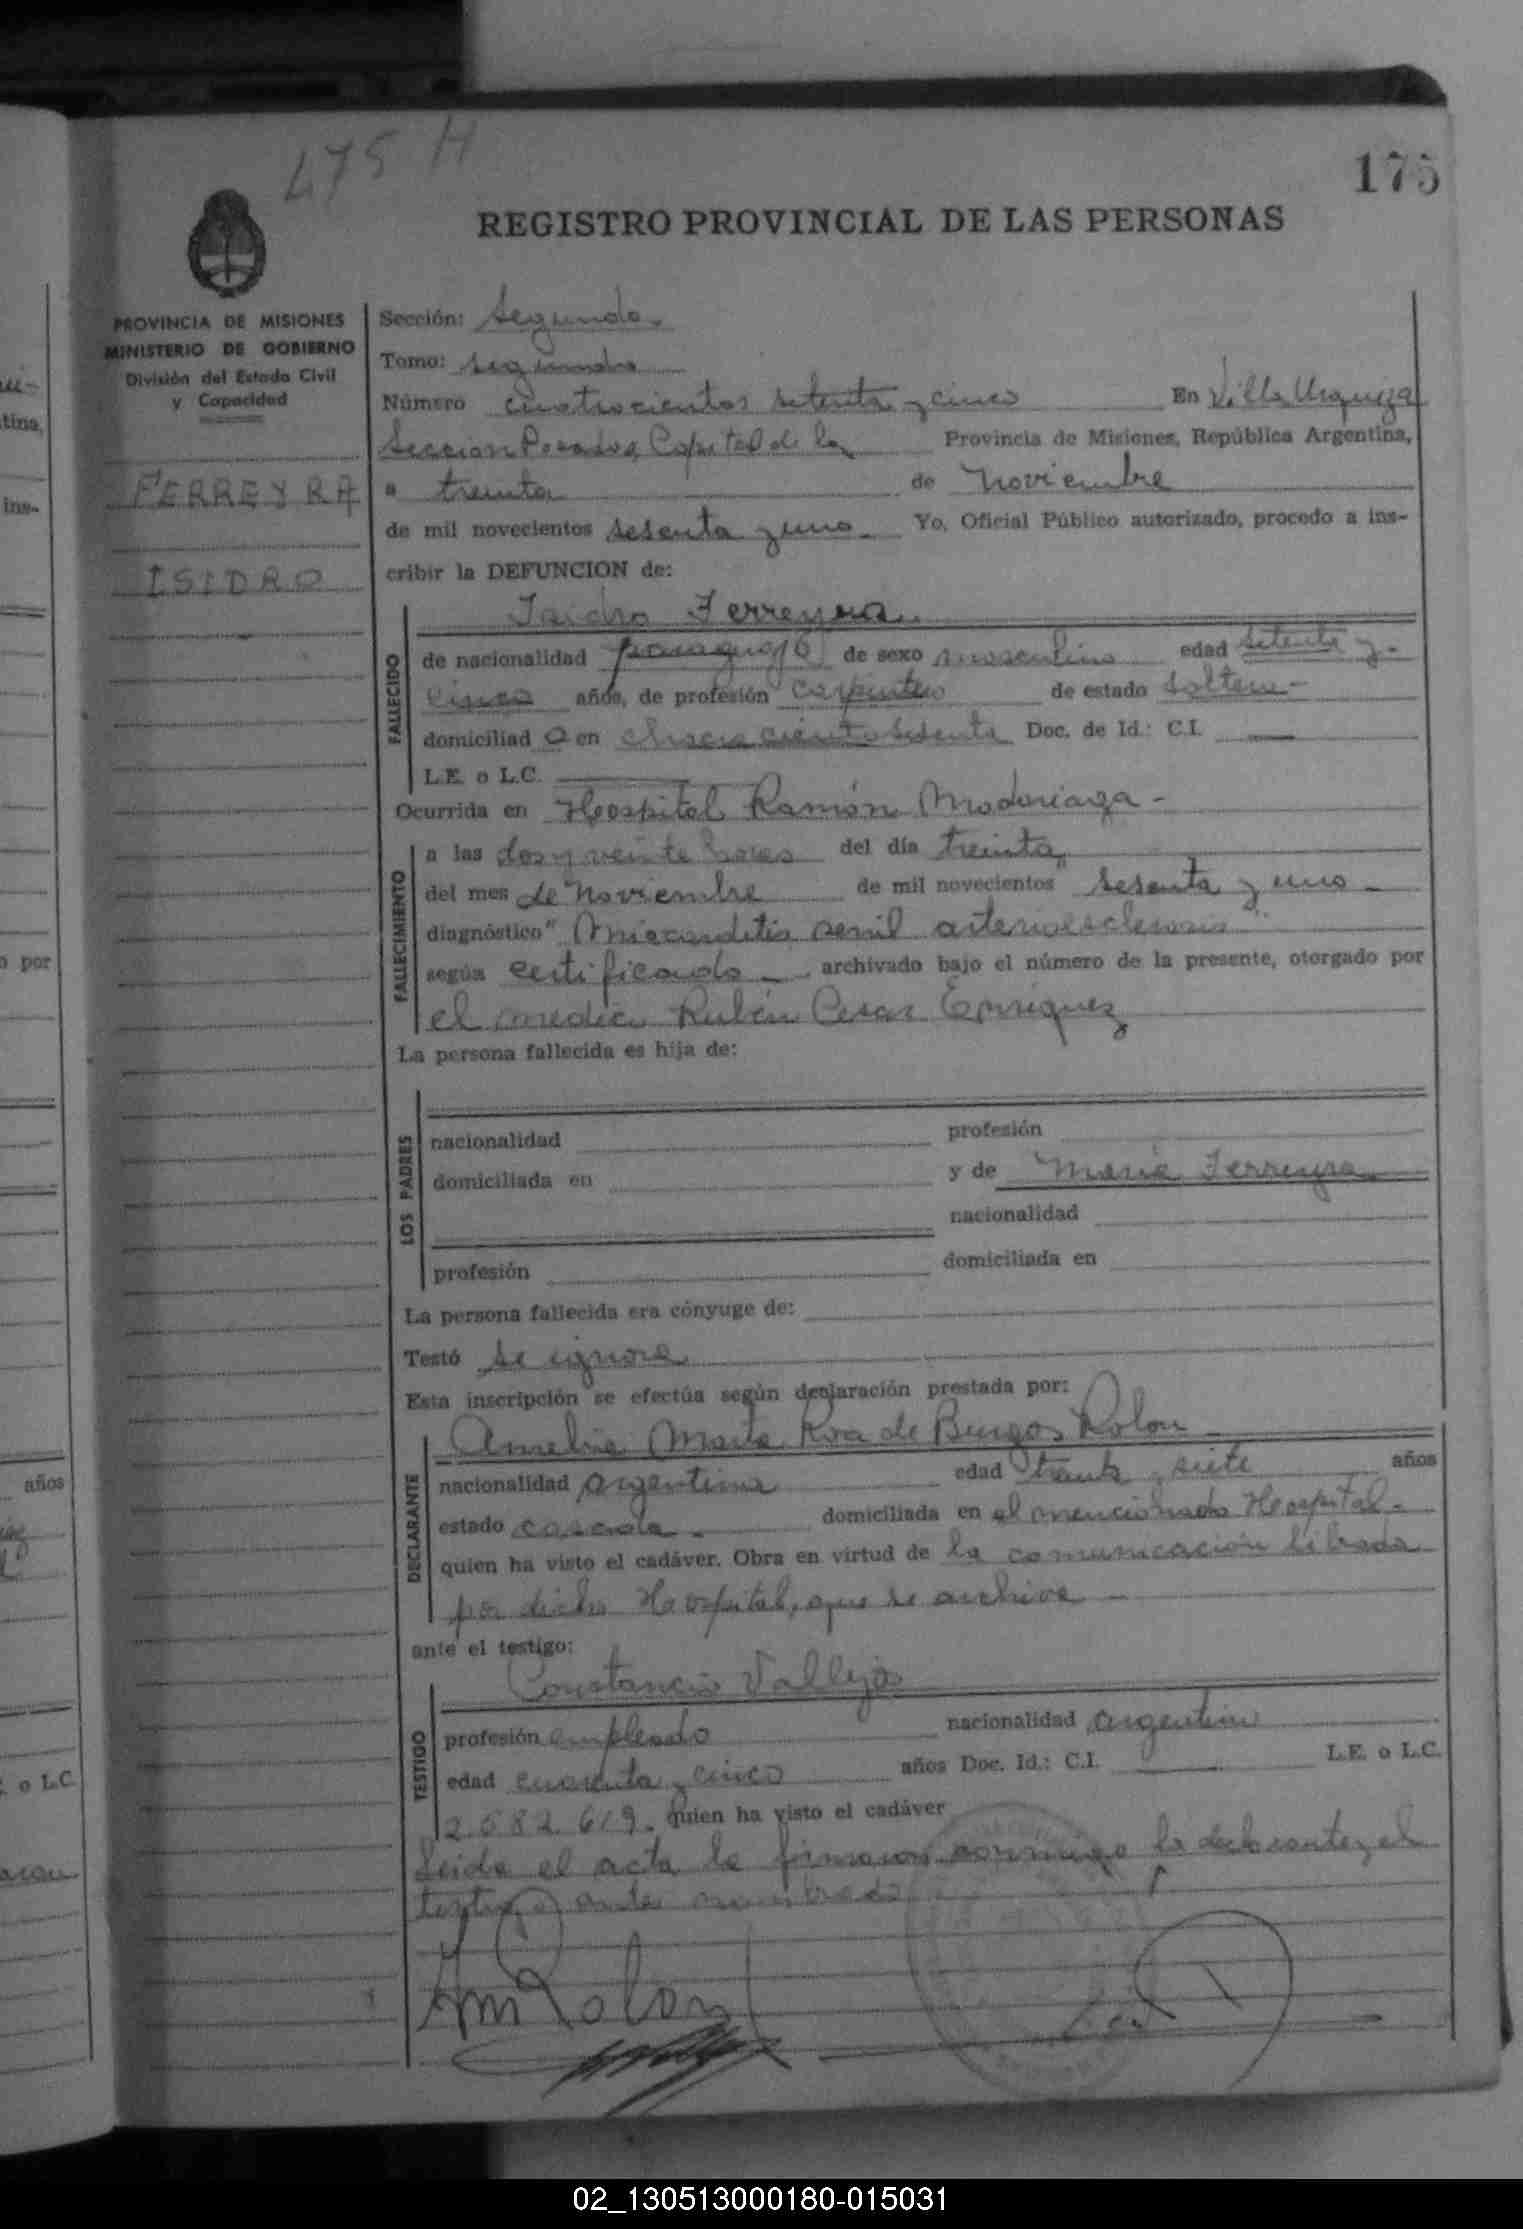 475 H
175
REGISTRO PROVINCIAL DE LAS PERSONAS
PROVINCIA DE MISIONES
MINISTERIO DE GOBIERNO
División del Estado Civil
y Capacidad
FERREYRA
ISIDRO
Sección: Segunda.
Tomo: segundo
Número cuatrocientos setenta y cinco En Villa Urquiza
Sección Posadas, Capital de la Provincia de Misiones, República Argentina,
a treinta de Noviembre
de mil novecientos sesenta y uno. Yo, Oficial Público autorizado, procedo a ins-
cribir la DEFUNCION de:
Isidro Ferreyra.
FALLECIDO
de nacionalidad paraguayo de sexo masculino edad setenta y-
cinco años, de profesión carpintero de estado soltero-
domiciliad o en chacra ciento sesenta Doc. de Id.: C.I.
L.E. o L.C.
Ocurrida en Hospital Ramón Madariaga -
FALLECIMIENTO
a las dos y veinte horas del día treinta
del mes de Noviembre de mil novecientos sesenta y uno -
diagnóstico " Miocarditis senil arterioesclerosis "
según certificado - archivado bajo el número de la presente, otorgado por
el medico Rubén Cesar Enriquez
La persona fallecida es hija de:
LOS PADRES
nacionalidad profesión
domiciliada en y de María Ferreyra
nacionalidad
profesión domiciliada en
La persona fallecida era cónyuge de:
Testó se ignora
Esta inscripción se efectúa según declaración prestada por:
DECLARANTE
Amelia Marta Roa de Burgos Rolon
nacionalidad argentina edad treinta y siete años
estado casada - domiciliada en el mencionado Hospital -
quien ha visto el cadáver. Obra en virtud de la comunicación librada
por dicho Hospital, que se archiva -
ante el testigo:
TESTIGO
Constancio Vallejos
profesión empleado nacionalidad argentino
edad cuarenta y cinco años Doc. Id.: C.I. L.E. o L.C.
2.582.619. quien ha visto el cadáver
Leida el acta la firmaron conmigo la declarante y el
testigo antes nombrado
Rolon
tina,
ins-
o por
años
E. o L.C.
02_130513000180-015031